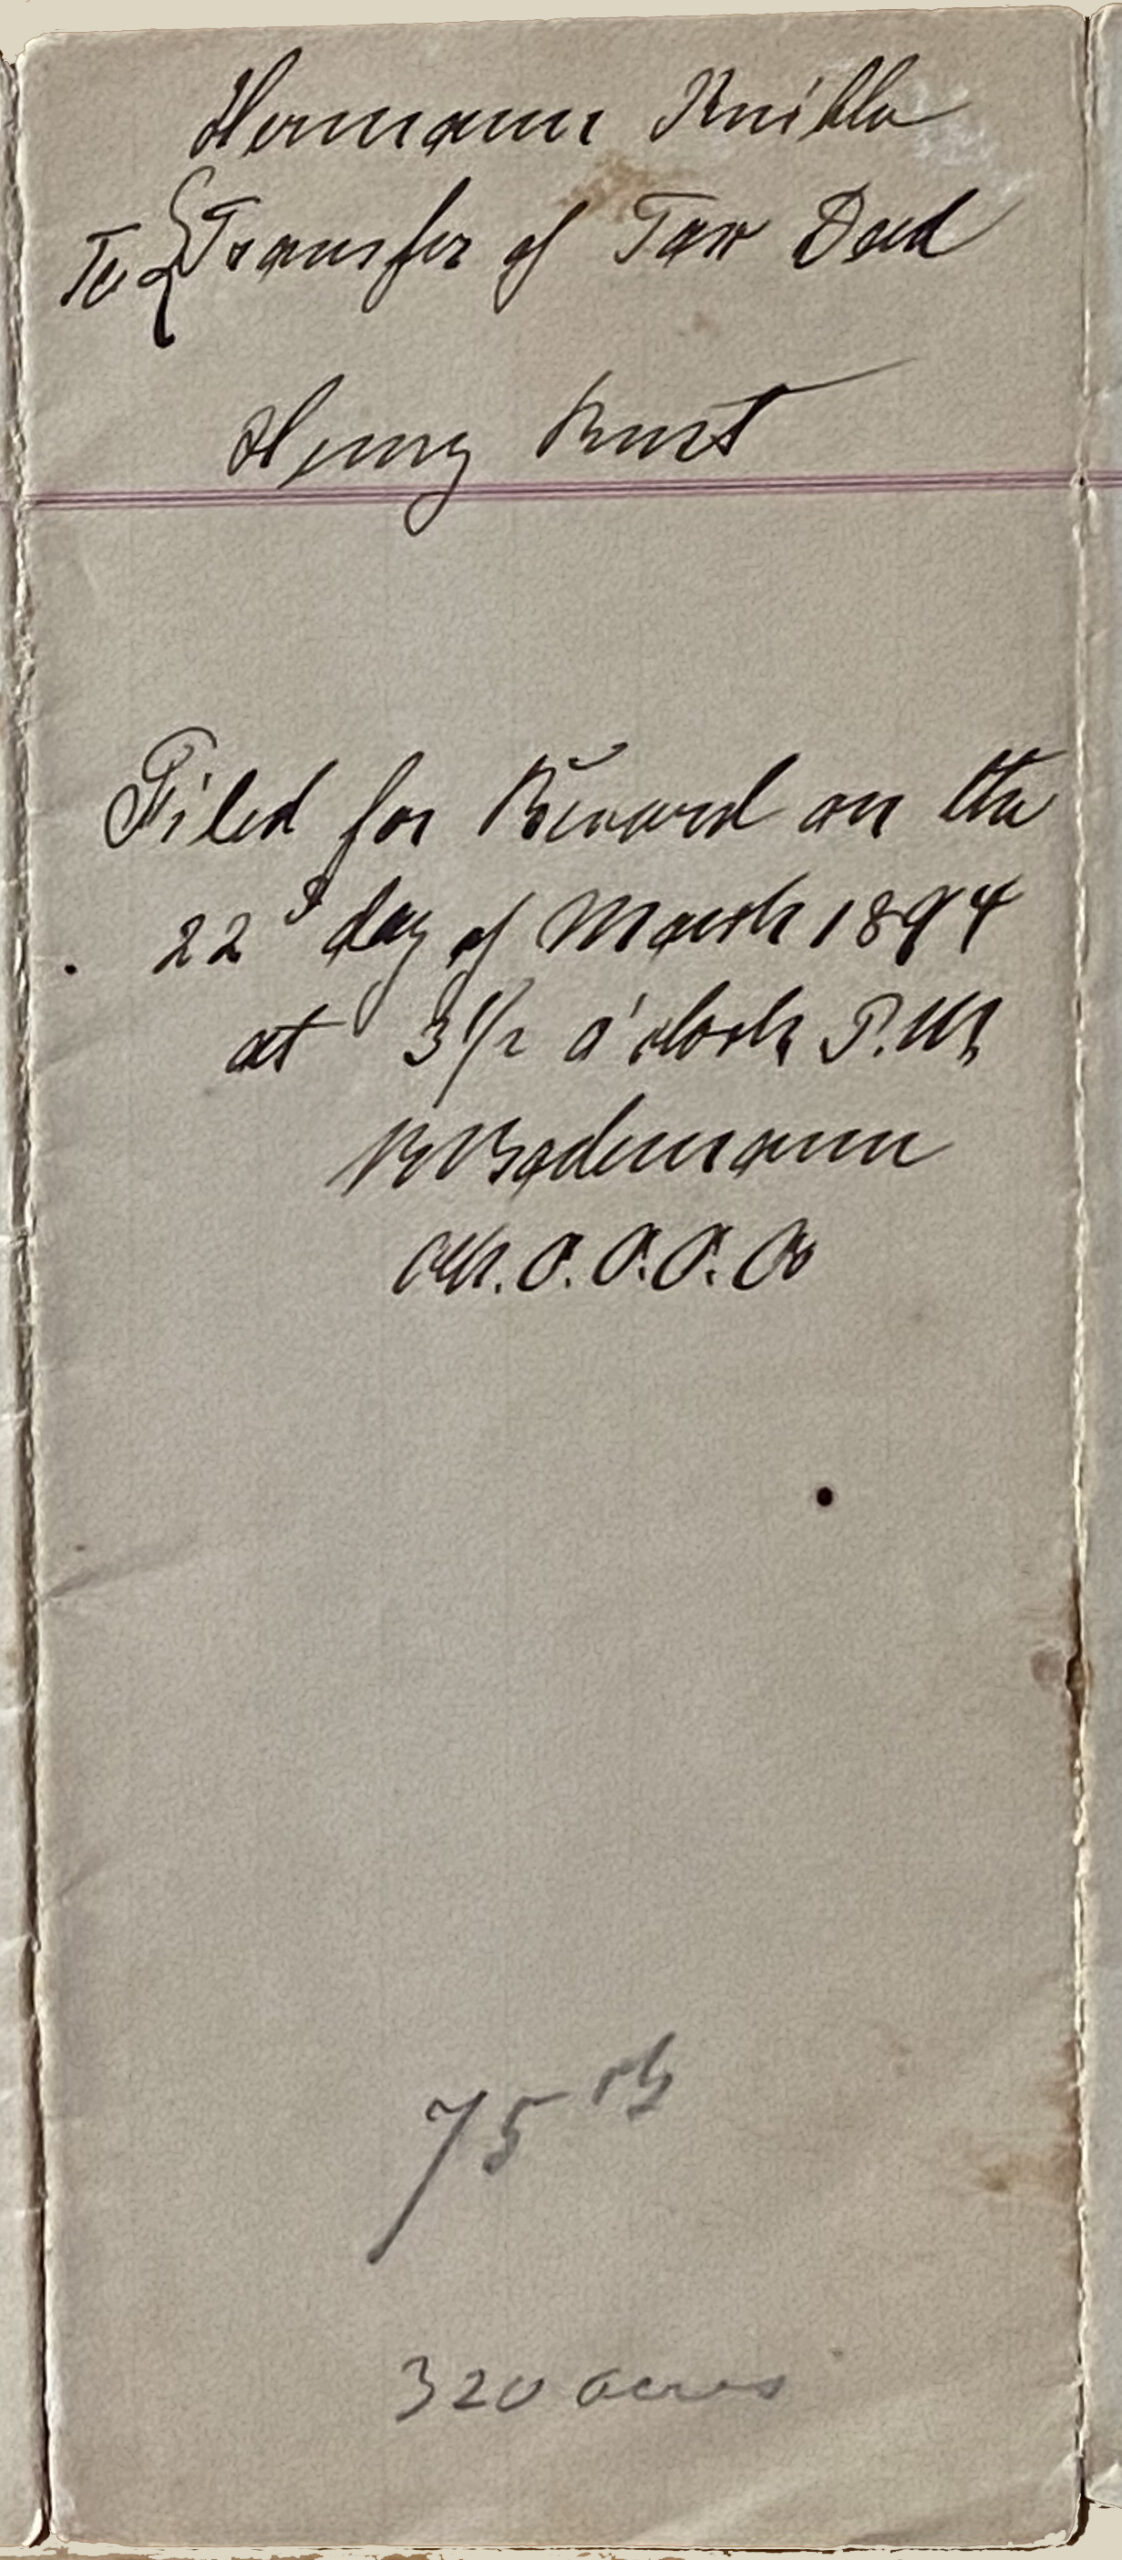 Hermann Knibbe
To { Transfer of Tax Deed
Henry Kust
Filed for Record on the
22d day of March 1894
at 3 1/2 o'clock P.M.
Bodemann
Clk. C. C. C. Co
75 cts
320 acres